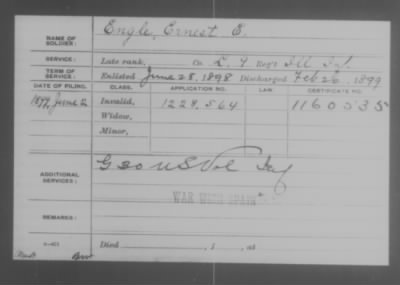 NAME OF SOLDIER: Engle, Ernest E.
SERVICE: Late rank, Co. L, 9 Reg't Ill Inf.
TERM OF SERVICE: Enlisted June 28, 1898 Discharged Feb 26, 1899
DATE OF FILING. CLASS. APPLICATION NO. LAW. CERTIFICATE NO.
1899, June 2 Invalid, 1228,564 1160535
Widow,
Minor,
ADDITIONAL SERVICES: G 30 US Vol Inf
WAR WITH SPAIN
REMARKS:
Died , 1 , at